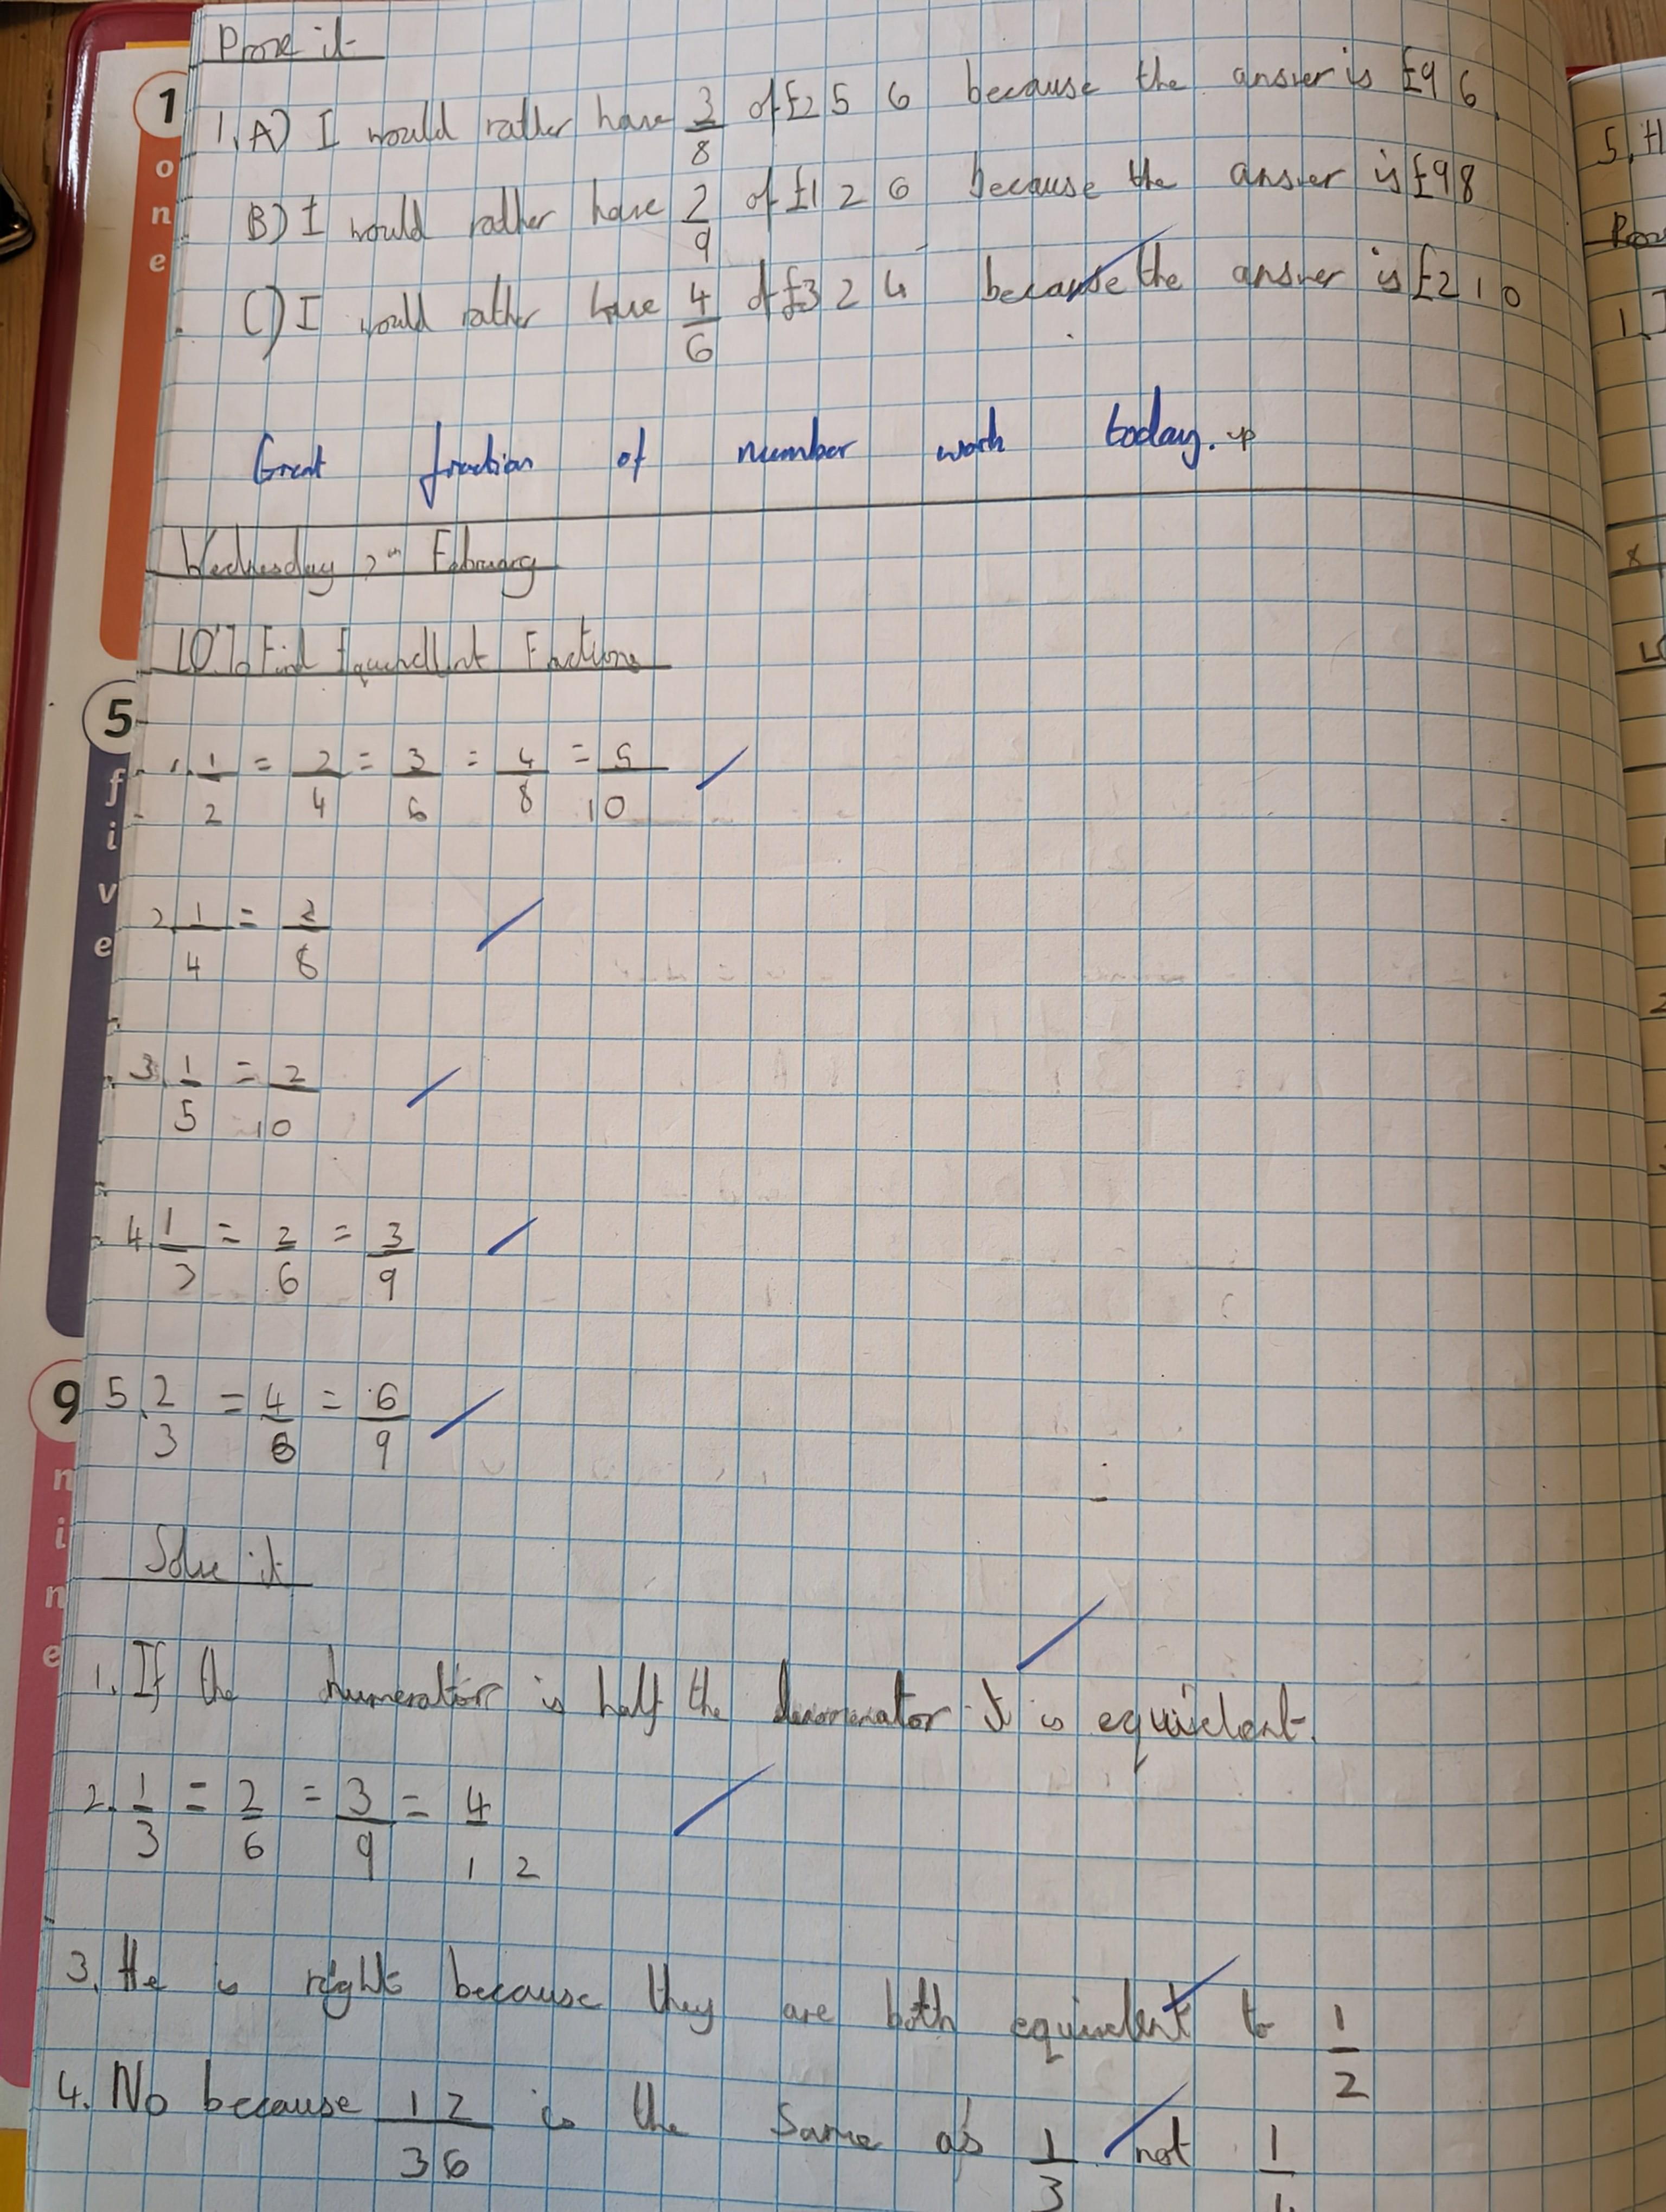 Prove it
1. A) I would rather have 3/8 of £256 because the answer is £96.
B) I would rather have 2/9 of £126 because the answer is £98
C) I would rather have 4/6 of £324 because the answer is £210
Great fraction of number work today.
Wednesday February
LO: To Find Equivellent Fractions
1. 1/2 = 2/4 = 3/6 = 4/8 = 5/10
2. 1/4 = 2/8
3. 1/5 = 2/10
4. 1/3 = 2/6 = 3/9
5. 2/3 = 4/6 = 6/9
Solve it
1. If the numerator is half the denominator it is equivelent.
2. 1/3 = 2/6 = 3/9 = 4/12
3. He is right because they are both equivelent to 1/2
4. No because 12/36 is the same as 1/3 not 1/
1
one
5
five
9
nine
5. H
Prov
1. I
x